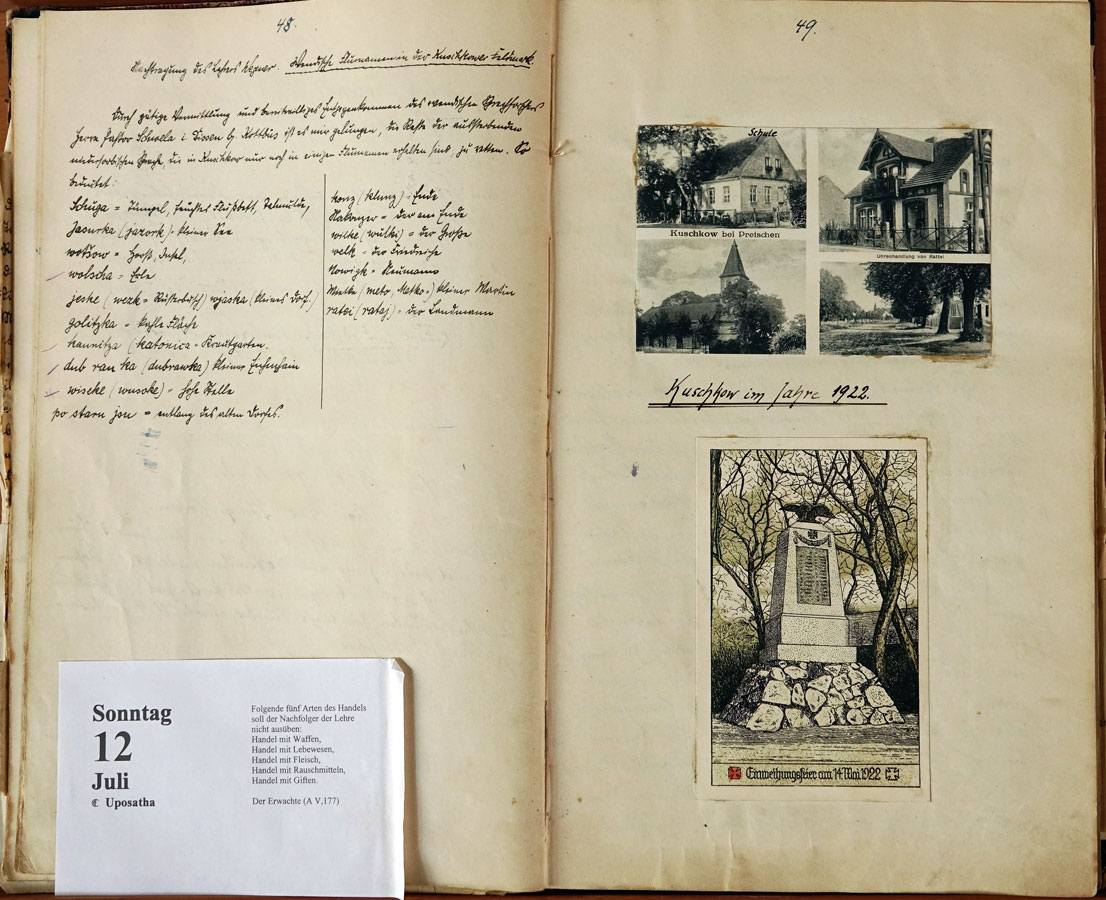 48.
Nachtragung des Lehrers . Wendische Flurnamen in der Kuschkower Feldmark.
Durch gütige Vermittlung und bereitwilliges Entgegenkommen des wendischen Sprachforschers
Herrn Pastor Schwella i. Dissen b. Kottbus ist es mir gelungen, die Reste der aussterbenden
niedersorbischen Sprache, die in Kuschkow nur noch in einzen Flurnamen erhalten sind, zu retten. So
bedeutet:
Schuga = Tümpel, feuchtes Flußbett, Talmulde,
Jasurka (jazork) = kleiner See
wotsow = Horst, Insel,
wolscha = Erle
jeske (wezk = ) wjaska (kleines Dorf.)
golitzka = kahle Fläche
kaunitza (katonica = Krautgarten.
dub ran ka (dubrawka) kleiner Eichenhain
wiseke (wusoke) = hohe Stelle
po starn jsu = entlang des alten Dorfes.
konz (klunz) = Ende
Nakonzer = der am Ende
wilke (wulki) = der Große
welk = der
Nowigk = Neumann
Mietke (meto, Metko =) kleiner Martin
ratei (rataj) = der Landmann
49.
Schule
Kuschkow bei Pretschen
Uhrenhandlung von Rattei
Kuschkow im Jahre 1922.
Einweihungsfeier am 14. Mai 1922
Sonntag
12
Juli
☾ Uposatha
Folgende fünf Arten des Handels
soll der Nachfolger der Lehre
nicht ausüben:
Handel mit Waffen,
Handel mit Lebewesen,
Handel mit Fleisch,
Handel mit Rauschmitteln,
Handel mit Giften.
Der Erwachte (A V,177)